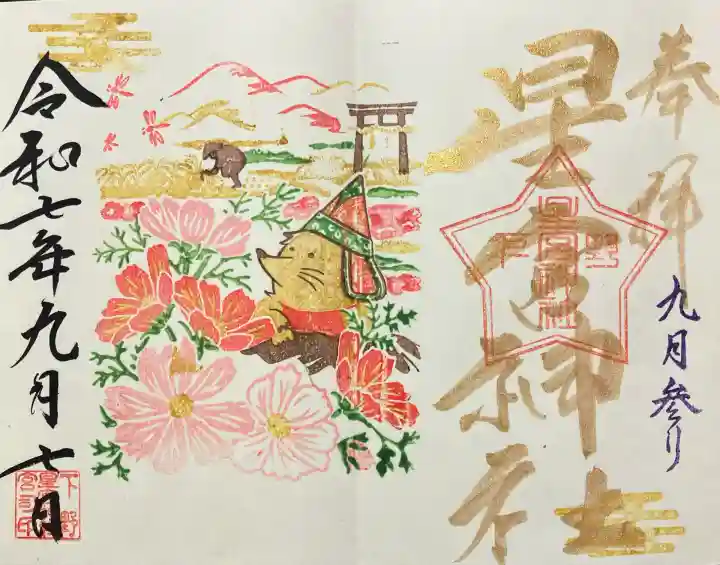 奉拝
九月参り
星宮神社
下野
星宮神社
令和七年九月七日
下野
星宮
宮之印